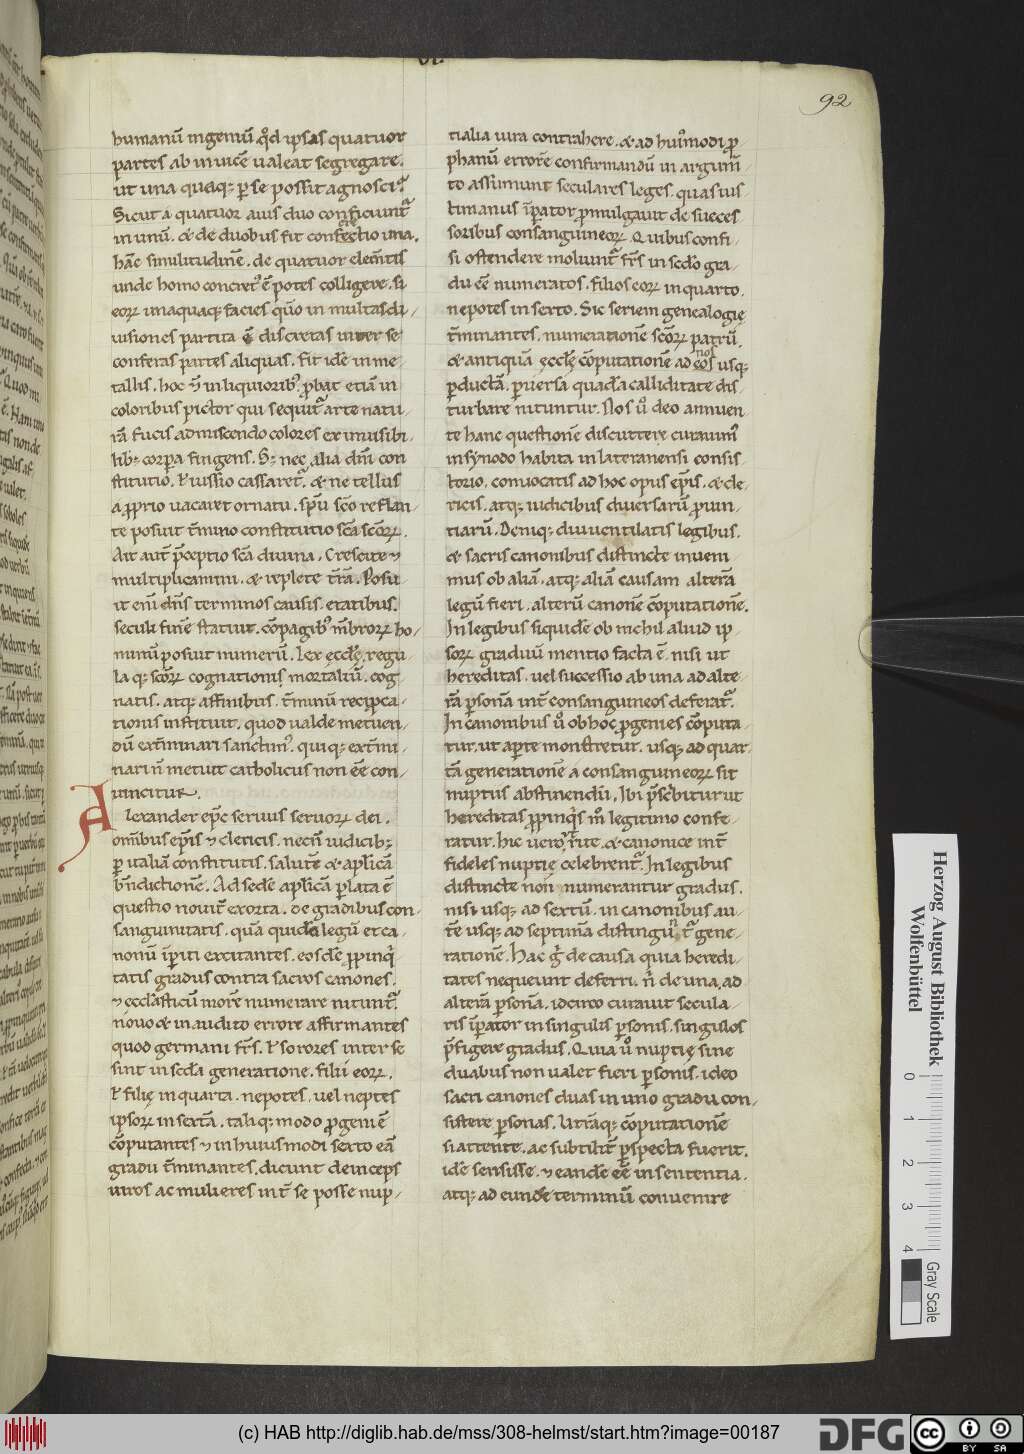 92
humanū ingeniū qd ipsas quatuor
partes ab inuicē ualeat segregare,
ut una quaq; p se possit agnosci?
Sicut a quatuor auis duo conficiunt̄
in unū, & de duobus fit confectio una.
hāc similitudinē, de quatuor elem̄tis
unde homo concret' ē potes colligere, si
eoꝝ unaquaq; facies quō in multas di-
uisiones partita ē discretas inter se
conferas partes aliquas. Fit idē in me-
tallis, hoc in liquoribꝫ, pbat etiā in
coloribus pictor qui sequit̄ arte natu-
rā fucis admiscendo colores ex inuisibi-
libꝫ corpora fingens. Sꝫ nec alia dn̄i con
stitutio, ł iussio cassaret̄, & ne tellus
a pprio uacaret ornatu, spū sc̄o reflan-
te posuit t̄mino constitutio sc̄a sc̄oꝝ.
Ait aut̄ p̄ceptio sc̄a diuina, Crescite ⁊
multiplicamini, & replete t̄rā. Posu-
it eni dn̄s terminos causis, etatibus,
seculi finē statuit, cōpagibꝫ mb̄roꝝ ho-
minū posuit numerū. Lex ęccl̄ę, regu-
la q; sc̄oꝝ cognationis mortaliū, cog-
natis, atq; affinibus, t̄minū recipca-
tionis instituit, quod ualde metuen-
dū ext̄minari sanctim', qui q; ext̄mi-
nari n̄ metuit catholicus non eē con-
uincitur.
Alexander ep̄c seruus seruoꝝ dei,
omībus ep̄is ⁊ clericis, necn̄ iudicibꝫ
p italiā constitutis, salutē & aplicā
bn̄dictionē. Ad sedē aplicā plata ē
questio nouit̄ exorta, de gradibus con-
sanguinitatis, quā quidā legū et ca-
nonū īpiti excitantes, eosdē ppinq̇
tatis gradus contra sacros canones,
⁊ eccl̄asticū morē numerare nitunt̄,
nouo & inaudito errore affirmantes
quod germani fr̄s, ł sorores inter se
sint in sc̄da generatione, filii eoꝝ,
ł filię in quarta, nepotes, uel neptes
ipsoꝝ in sexta, taliq; modo pgeniē
cōputantes ⁊ in huiusmodi sexto eā
gradu t̄minantes, dicunt deinceps
uiros ac mulieres int̄ se posse nup-
tialia iura contrahere, & ad hui'modi p
phanū errorē confirmandū in argum̄
to assumunt seculares leges, quas ius
tinianus īpator pmulgauit de succes
soribus consanguineoꝝ. Quibus confi-
si ostendere moliunt̄ fr̄s in sc̄do gra-
du eē numeratos, filios eoꝝ in quarto,
nepotes in sexto. Sic seriem genealogię
t̄minantes, numerationē sc̄oꝝ patrū,
& antiquā ęccl̄ę cōputationē ad nos usq;
pductā, puersa quadā calliditate dis
turbare nituntur. Nos ů deo annuen
te hanc questionē discuttere curauim'
in synodo habita in lateranensi consis-
torio, conuocatis ad hoc opus ep̄is, & cle-
ricis, atq; iudicibus diuersarū puin-
tiarū. Deniq; diu uentilatis legibus,
& sacris canonibus distincte inueni-
mus ob aliā, atq; aliā causam alterā
legū fieri, alterū canonē cōputationē.
In legibus siquidē ob nichil aliud ip-
soꝝ graduū mentio facta ē, nisi ut
hereditas, uel successio ab una ad alte-
rā psonā int̄ consanguineos deferat̄.
In canonibus ů ob hoc pgenies cōputa-
tur, ut apte monstretur, usq; ad quar-
tā generationē a consanguineoꝝ sit
nuptiis abstinendū. Ibi p̄sc̄bitur ut
hereditas ppinq̇s m̊ legitimo confe-
ratur, hic uero, rite, & canonice int̄
fideles nuptię celebrent̄. In legibus
distincte non numerantur gradus,
nisi usq; ad sextū, in canonibus au-
tē usq; ad septimā distingūt̄ gene-
rationē. Hac g̊ de causa quia heredi-
tates nequeunt deferri, n̊ de una ad
alterā psonā, idcirco curauit secula-
ris īpator in singulis psonis, singulos
p̄figere gradus. Quia ů nuptię sine
duabus non ualet fieri psonis, ideo
sacri canones duas in uno gradu con-
sistere psonas. Utrāq; cōputationē
si attente, ac subtilit̄ pspecta fuerit,
idē sensisse, ⁊ eandē eē in sententia,
atq; ad eundē terminū conuenire
Herzog August Bibliothek
Wolfenbüttel
0 1 2 3 4
Gray Scale
(c) HAB http://diglib.hab.de/mss/308-helmst/start.htm?image=00187
DFG
cc BY SA